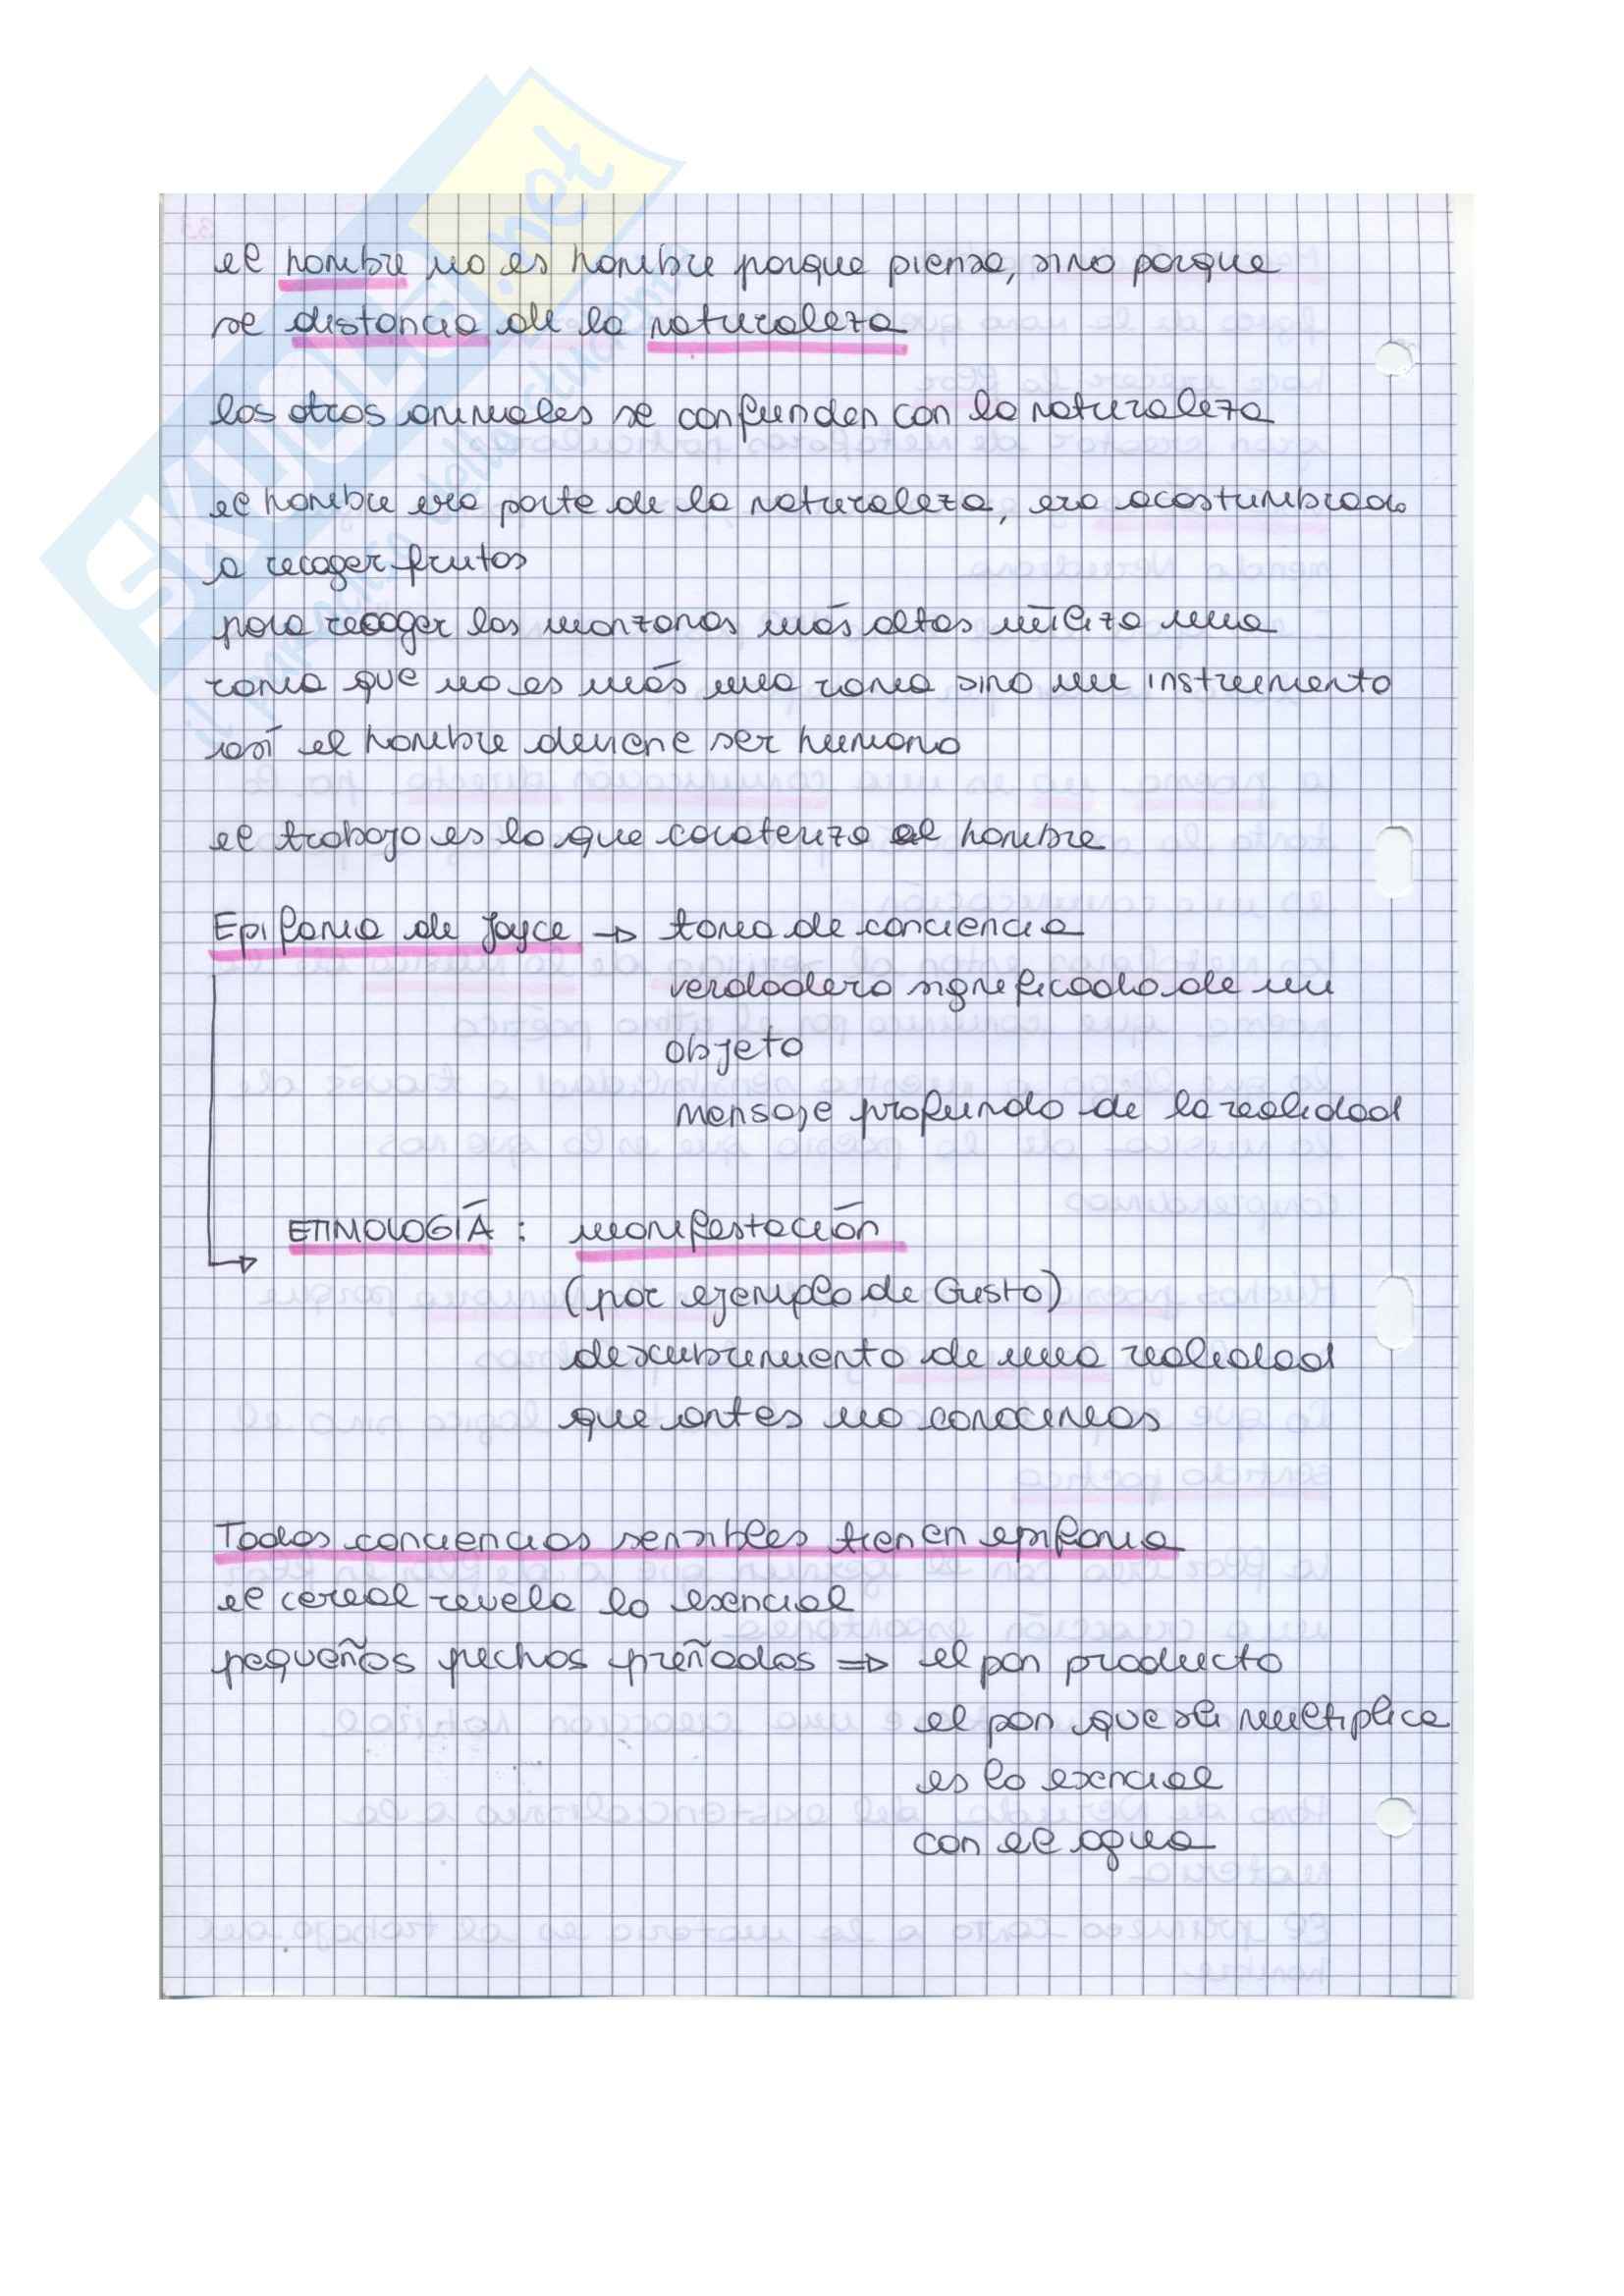 SKUOLA.net
el hombre no es hombre porque piensa, sino porque
se distancia de la naturaleza
los otros animales se confunden con la naturaleza
el hombre era parte de la naturaleza, era acostumbrado
a recoger frutos
para recoger las manzanas más altas utiliza una
rama que no es más una rama sino un instrumento
así el hombre deviene ser humano
el trabajo es lo que caracteriza al hombre
Epifania de Joyce → toma de conciencia
verdadero significado de un
objeto
mensaje profundo de la realidad
ETIMOLOGÍA : manifestación
(por ejemplo de Gusto)
descubrimiento de una realidad
que antes no conocemos
Todas conciencias sensibles tienen epifania
el cereal revela lo esencial
pequeños pechos preñados ⇒ el pan producto
el pan que se multiplica
es lo esencial
con el agua